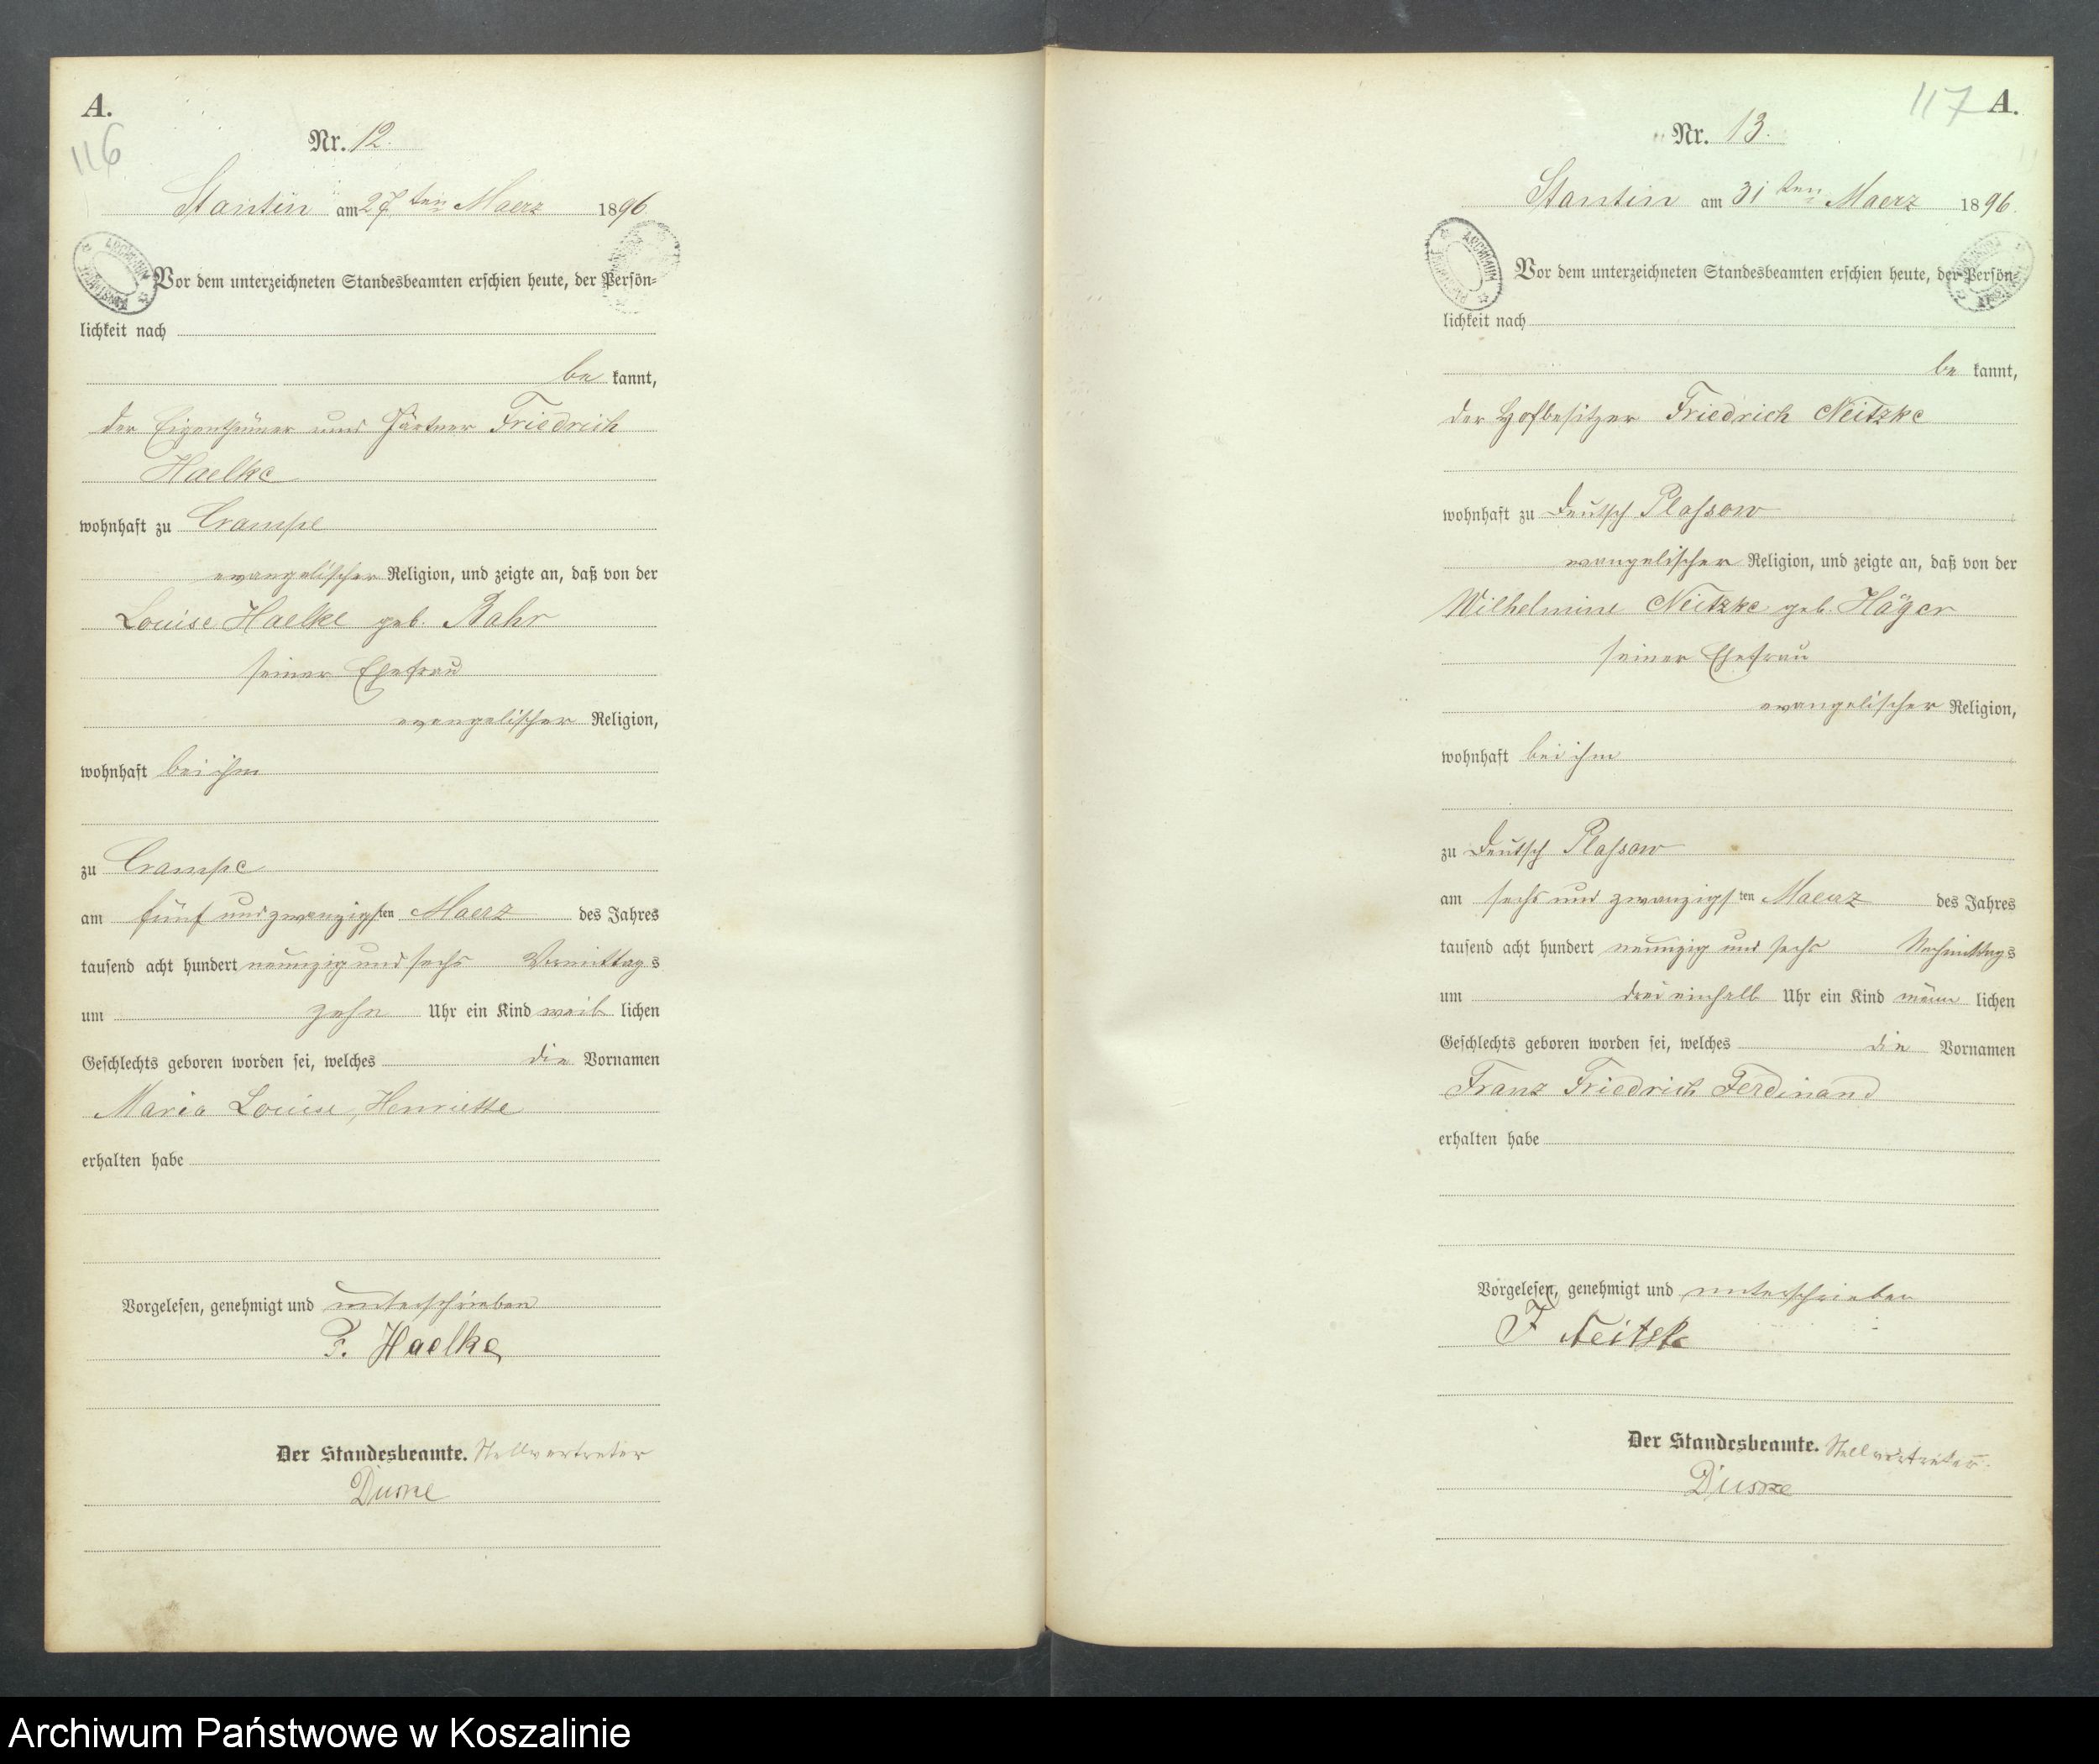 A.
116
Nr. 12.
Stantin am 27ten Maerz 1896
Vor dem unterzeichneten Standesbeamten erschien heute, der Persön-
lichkeit nach
be kannt,
der Eigenthümer und Gärtner Friedrich
Haelke
wohnhaft zu Crampe
evangelischer Religion, und zeigte an, daß von der
Louise Haelke geb. Bahr
seiner Ehefrau
evangelischer Religion,
wohnhaft bei ihm
zu Crampe
am fünf und zwanzigsten Maerz des Jahres
tausend acht hundert neunzig und sechs Vormittags
um zehn Uhr ein Kind weib lichen
Geschlechts geboren worden sei, welches die Vornamen
Maria Louise, Henriette
erhalten habe
Vorgelesen, genehmigt und unterschrieben
F. Haelke
Der Standesbeamte. Stellvertreter
117 A.
Nr. 13.
Stantin am 31ten Maerz 1896.
Vor dem unterzeichneten Standesbeamten erschien heute, der Persön-
lichkeit nach
be kannt,
der Hofbesitzer Friedrich Neitzke
wohnhaft zu Deutsch Plassow
evangelischer Religion, und zeigte an, daß von der
Wilhelmine Neitzke geb. Häger
seiner Ehefrau
evangelischer Religion,
wohnhaft bei ihm
zu Deutsch Plassow
am sechs und zwanzigsten Maerz des Jahres
tausend acht hundert neunzig und sechs Nachmittags
um drei einhalb Uhr ein Kind männ lichen
Geschlechts geboren worden sei, welches die Vornamen
Franz Friedrich Ferdinand
erhalten habe
Vorgelesen, genehmigt und unterschrieben
F Neitzke
Der Standesbeamte. Stellvertreter.
Archiwum Państwowe w Koszalinie